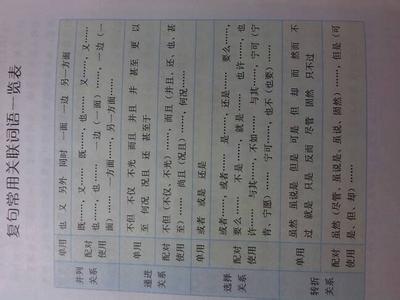 复句常用关联词语一览表
并列关系
单用
也 又 另外 同时 一面 一边 另一方面
配对使用
既……，又…… 既……，也…… 又……，又……
也……，也…… 一边（一面）……，一边（一
面）…… 一方面……，另一方面……
递进关系
单用
不但 不仅 不光 而且 并且 并 甚至 更 以
至 何况 况且 还 甚至于
配对使用
不但（不仅）……，而且（并且、还、也、甚
至）…… 尚且（况且）……，何况……
选择关系
单用
或者 或是 还是
配对使用
或者……，或者…… 是……，还是…… 要么……，
要么…… 不是……，就是…… 也许……，也
许…… 与其……，不如…… 与其……，宁可（宁
肯、宁愿）…… 宁可……，也不（也要）……
转折关系
单用
虽然 虽说 但是 可是 但 却 而 然而 不
过 就是 只是 反而 尽管 固然 只不过
配对使用
虽然（尽管、虽是、虽说、固然）……，但是（可
是、但、却）……